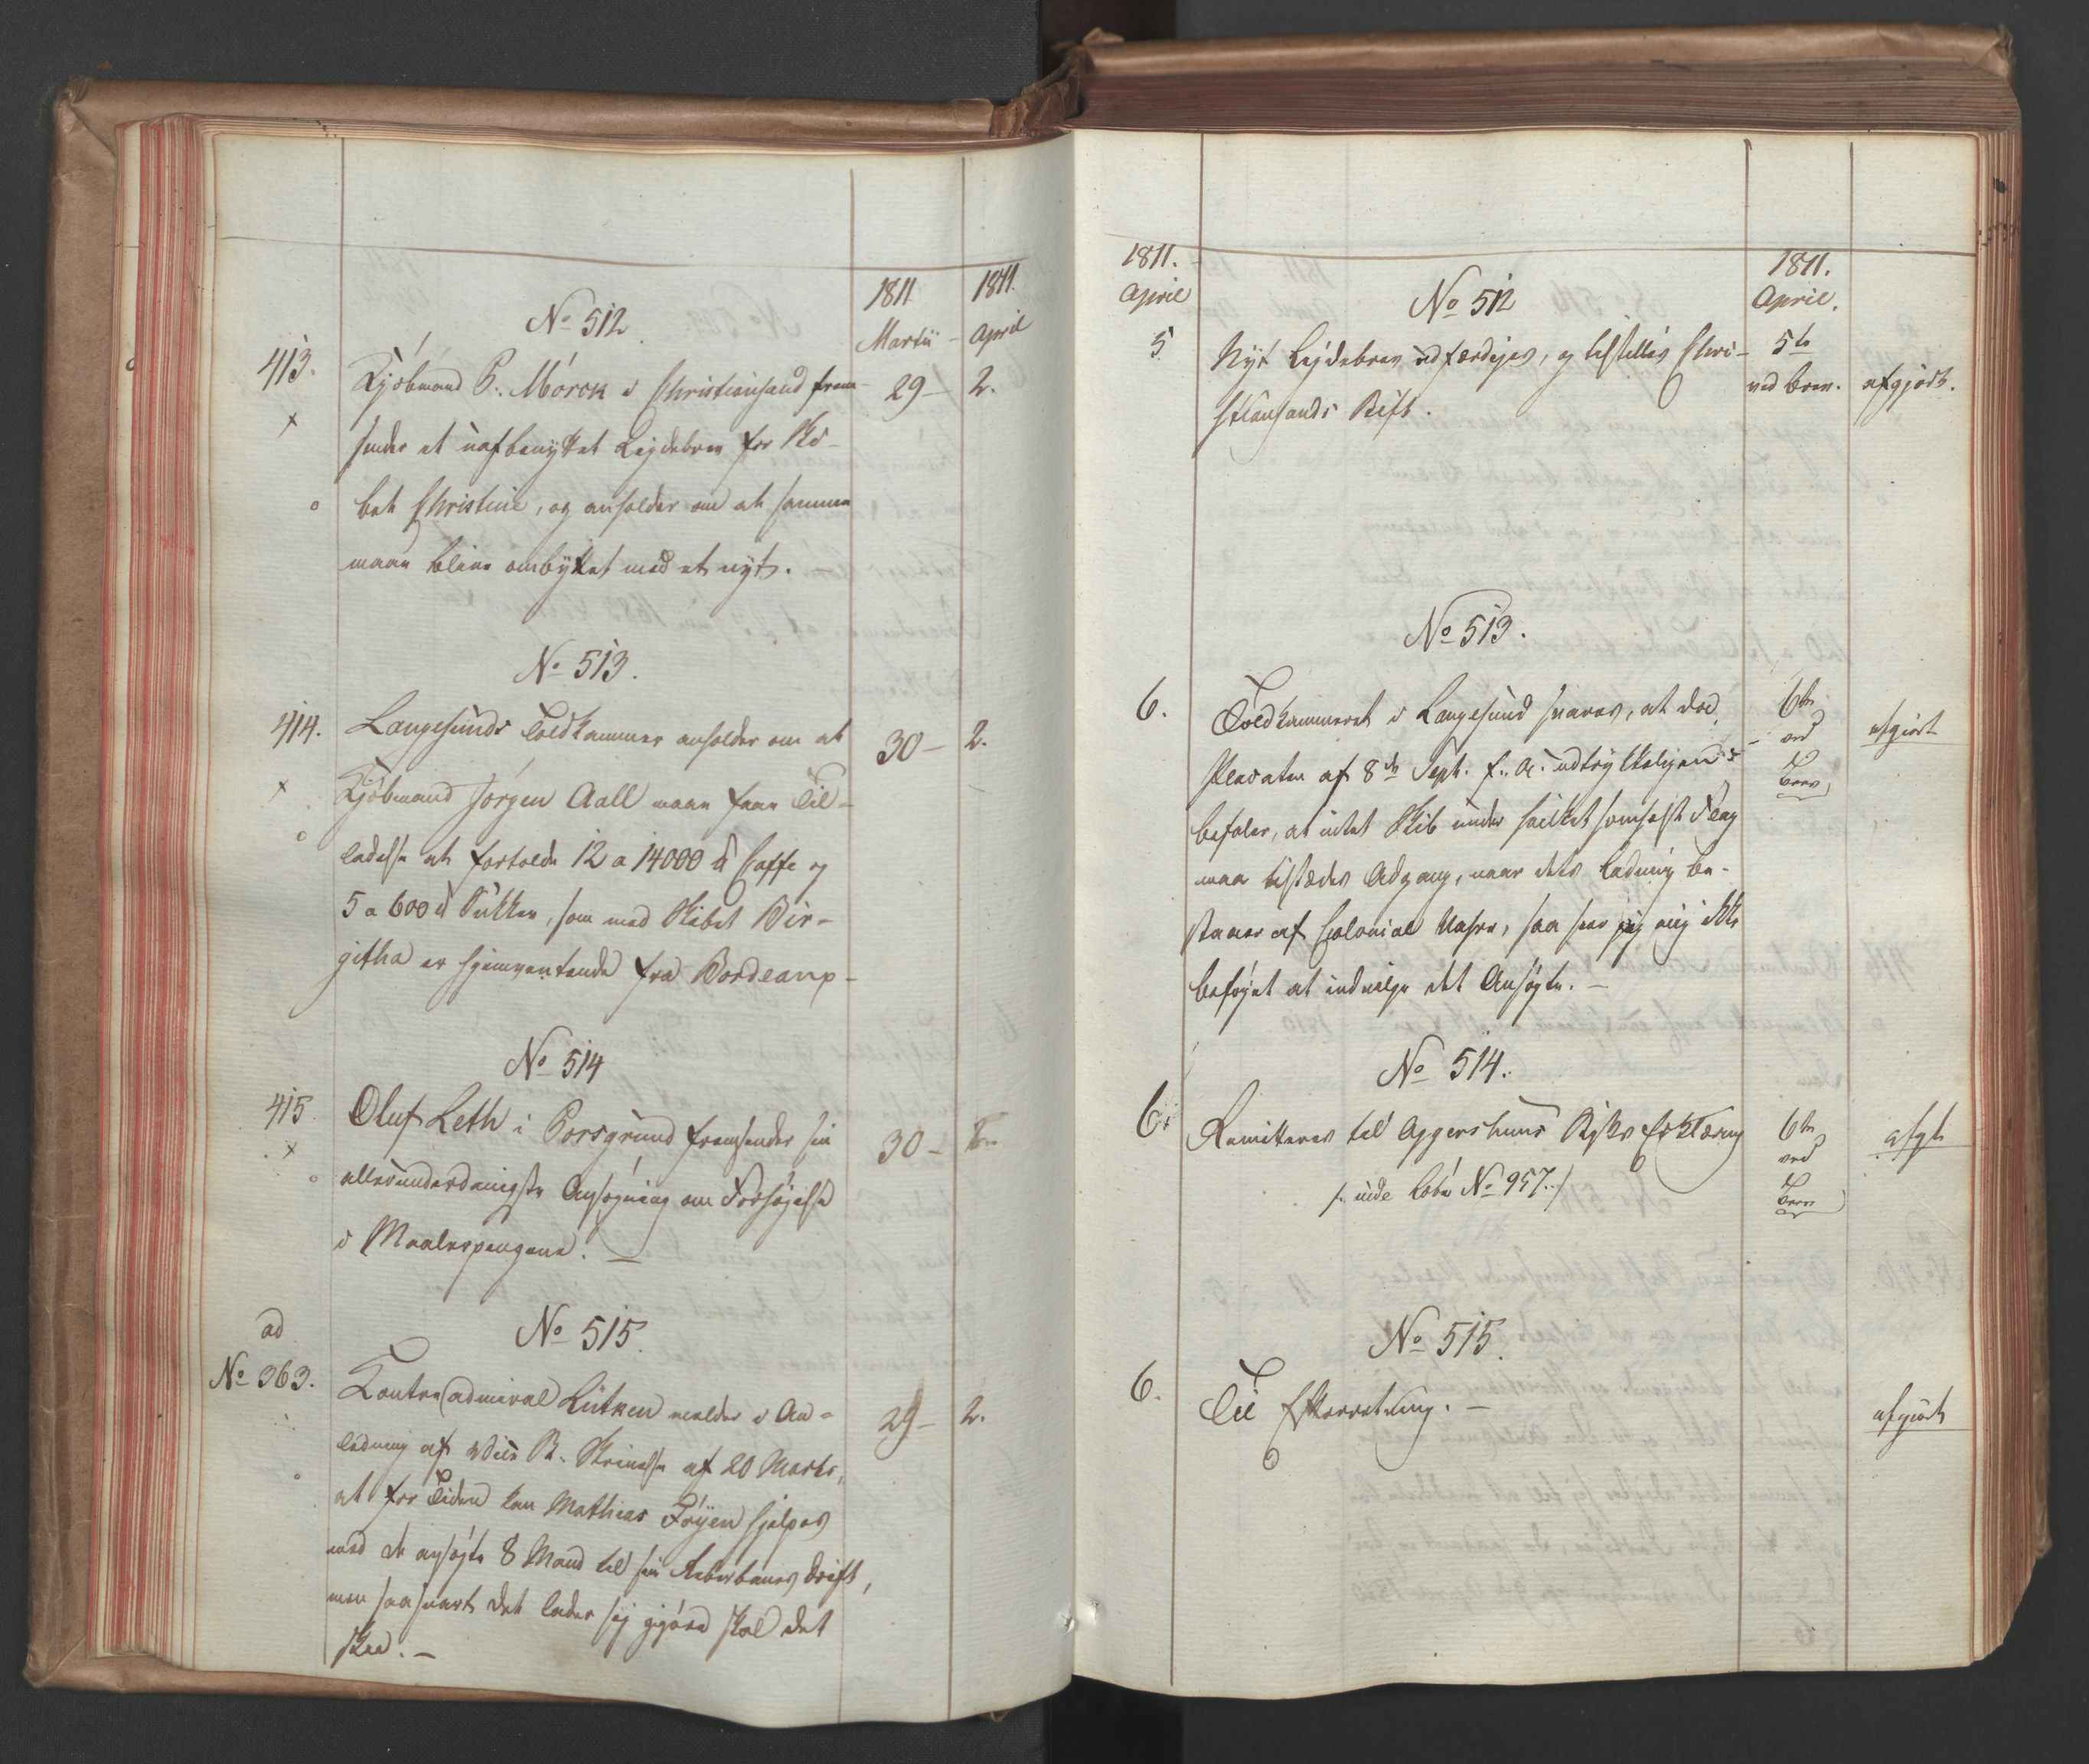 1811
Martii
1811.
April
No 512.
413.
Kjöbmand P. Mörck i Christiansand frem- 29 - 2.
sender et uafbenyttet Lejdebrev for Ski-
bet Christine, og anholder om at samme
maae blive ombyttet med et nyt.
No 513.
414.
Langesunds Toldkammer anholder om at 30 - 2.
Kjöbmand Jörgen Aall maae faae Til-
ladelse at fortolde 12 a 14000 ℔ Caffe og
5 a 600 ℔ Sukker, som med Skibet Bir-
githa er hjemventende fra Bordeaux -
No 514
415.
Oluf Leth i Porsgrund fremsender sin 30 -
allerunderdanigste Ansøgning om Forhøjelse
i Maalerpengene. -
No 515.
ad
No 363.
Contra admiral Lütken melder i An- 29 - 2.
ledning af R. Skrivelse af 20 Marts,
at for Tiden kan Mathias Föyen hjelpes
med de ansøgte 8 Mand til sin Reberbanes Drift,
men saasnart det lader sig gjøre skal det
skee. -
1811.
April
1811.
April.
No 512
5 Nyt Lejdebrev udfærdiges, og tilstilles Chri- 5te
stiansands Stift. ved brev. afgjort.
No 513.
6. Toldkammeret i Langesund svares, at da 6te
ved
Brev
afgiort
Placaten af 8de Sept. f. A. udtrykkeligen
befaler, at intet Skib under hvilket somhelst Flag
maa tilstædes Adgang, naar dets Ladning be-
staaer af Colonial Vahre, saa seer jeg mig ikke
beføjet at indvilge det Ansøgte. -
No 514.
6. Remitteres til Aggershuus Stifts Erklæring 6te
ved
Brev
afgt
/: vide Løbe No 957. :/
No 515.
6. Til Efterretning. -
afgiort